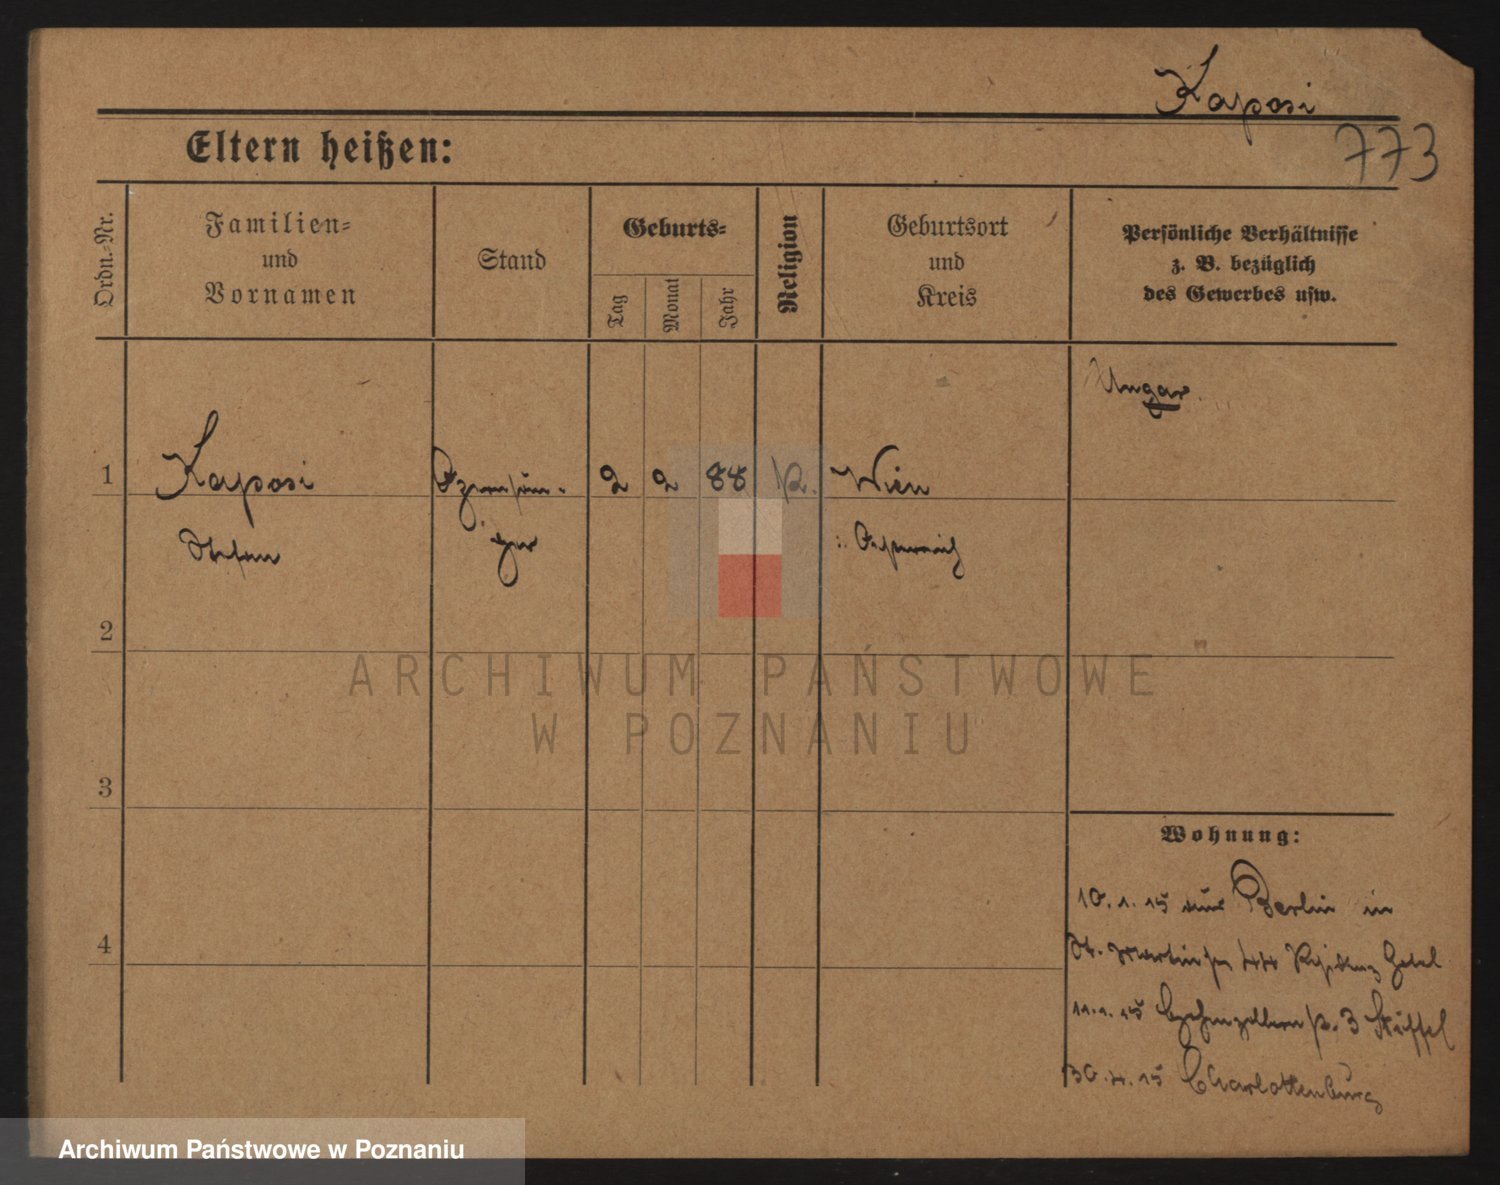 Kaposi
773
Eltern heißen:
Ordn.-Nr.
Familien-
und
Vornamen
Stand
Geburts-
Tag
Monat
Jahr
Religion
Geburtsort
und
Kreis
Persönliche Verhältnisse
z. B. bezüglich
des Gewerbes usw.
Ungar
1 Kaposi Opernsän- 2 2 88 Wien
Stefan ger Österreich
2
3
ARCHIWUM PAŃSTWOWE
W POZNANIU
Wohnung:
4
10.1.15 aus Berlin in
St. Martinstr 44 Residenz Hotel
11.1.15 Hohenzollernstr. 3
30.4.15 Charlottenburg
Archiwum Państwowe w Poznaniu